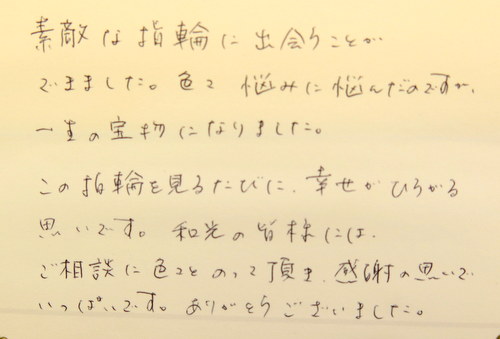 素敵な指輪に出会うことが
できました。色々悩みに悩んだのですが、
一生の宝物になりました。
この指輪を見るたびに、幸せがひろがる
思いです。和光の皆様には、
ご相談に色々とのって頂き、感謝の思いで
いっぱいです。ありがとうございました。